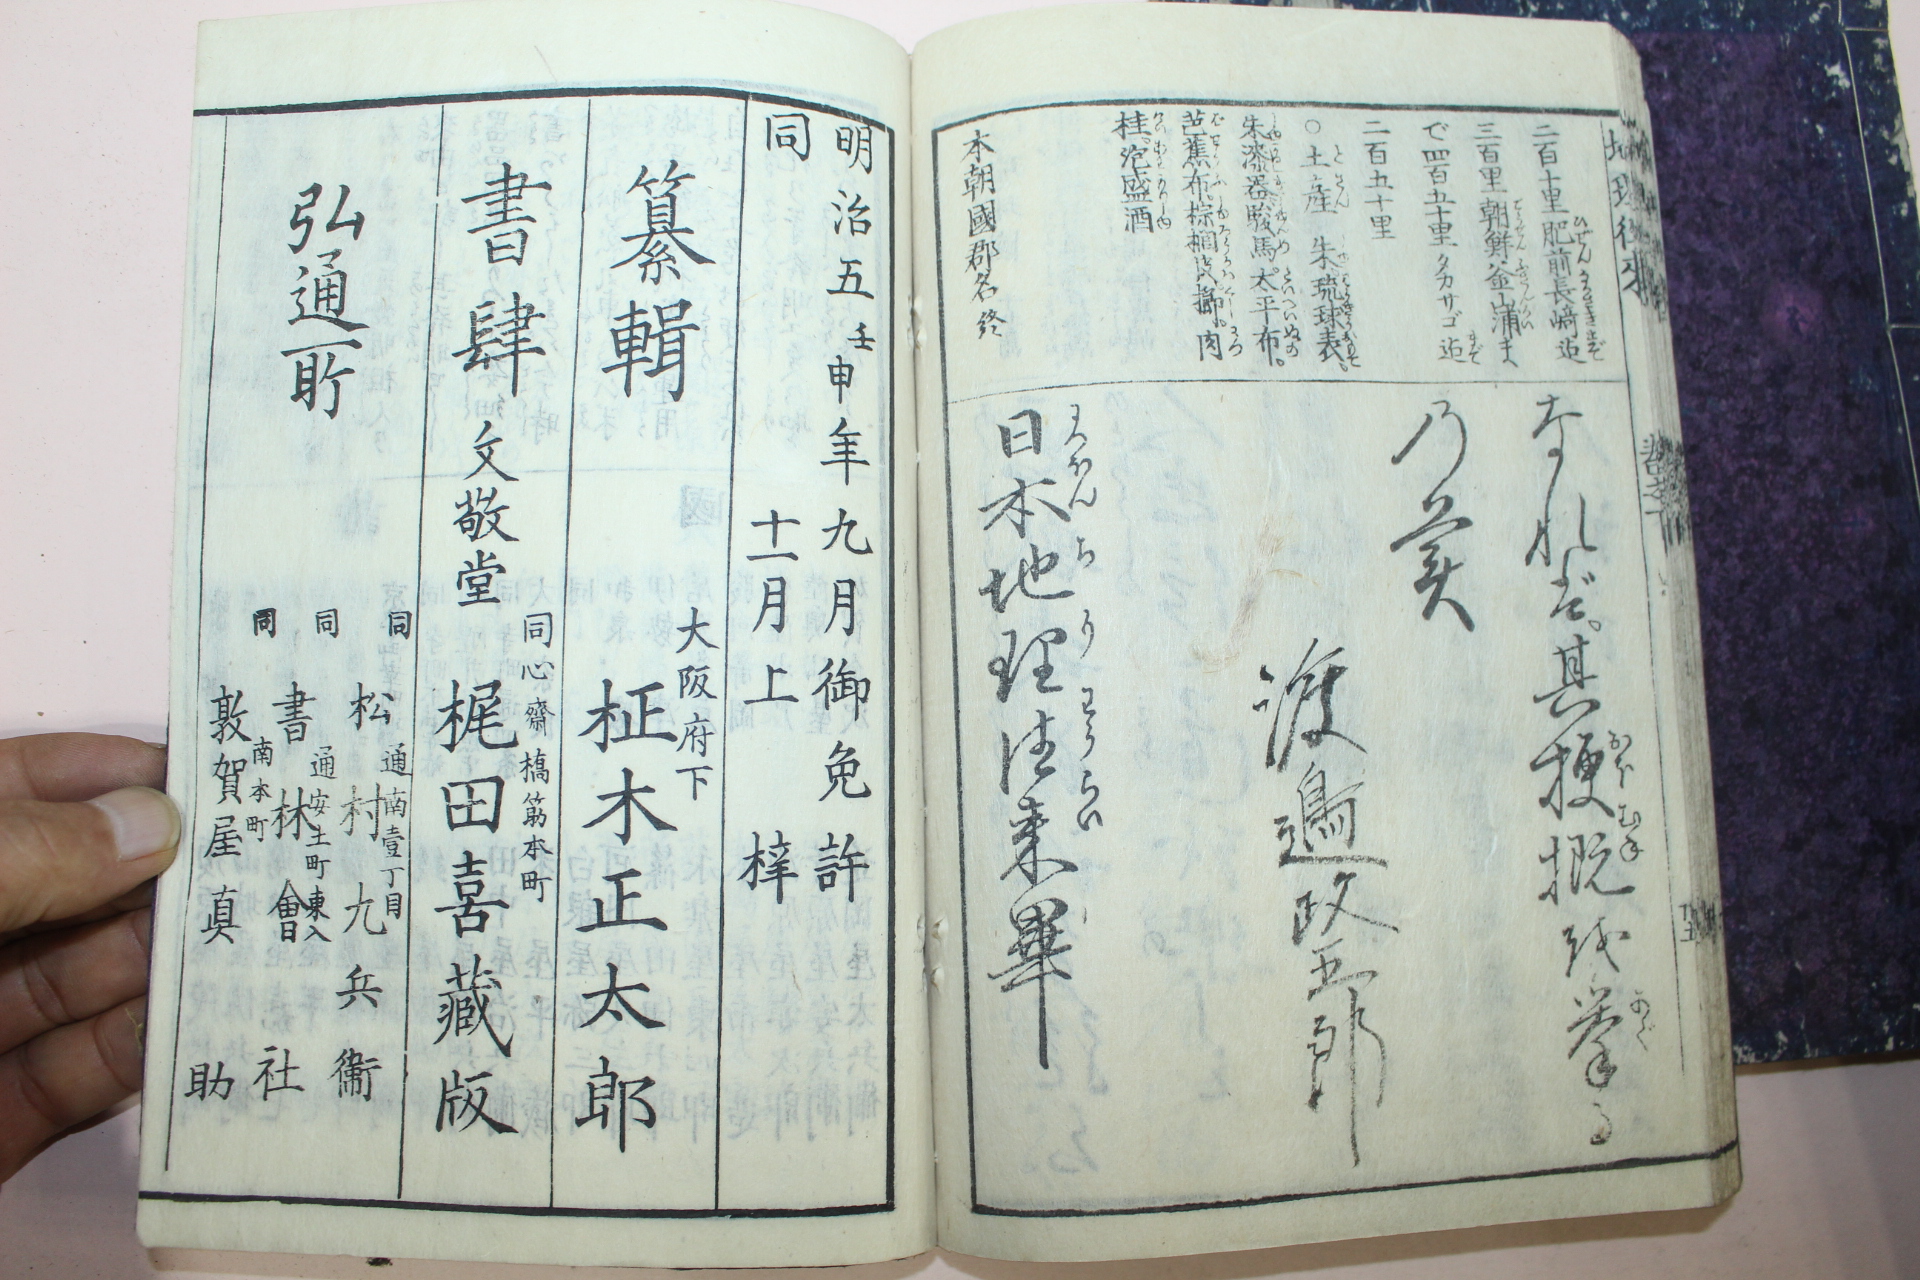 二百十里肥前長崎迠
三百里朝鮮釜山浦ま
で四百五十里タカサゴ迠
二百五十里
○土産 朱琉球表。
朱漆器駿馬太平布。
芭蕉布棕櫚皮。肉
桂。泡盛酒
本朝國郡名終
なれど。其梗概を挙る
乃矣
渡邉政五郎
日本地理往来畢
明治五壬申年九月御免許
同 十一月上梓
大阪府下
纂輯 柾木正太郎
同心齋橋筋本町
書肆文敬堂 梶田喜藏版
弘通所
同 通南壹丁目
松村九兵衛
同 通安土町東入
書林會社
同 南本町
敦賀屋真助